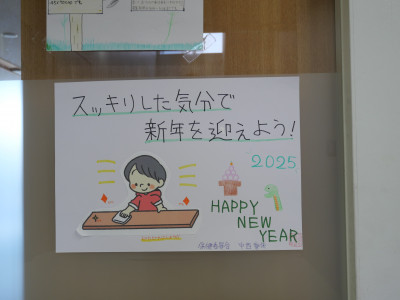 スッキリした気分で
新年を迎えよう!
2025
HAPPY
NEW
YEAR